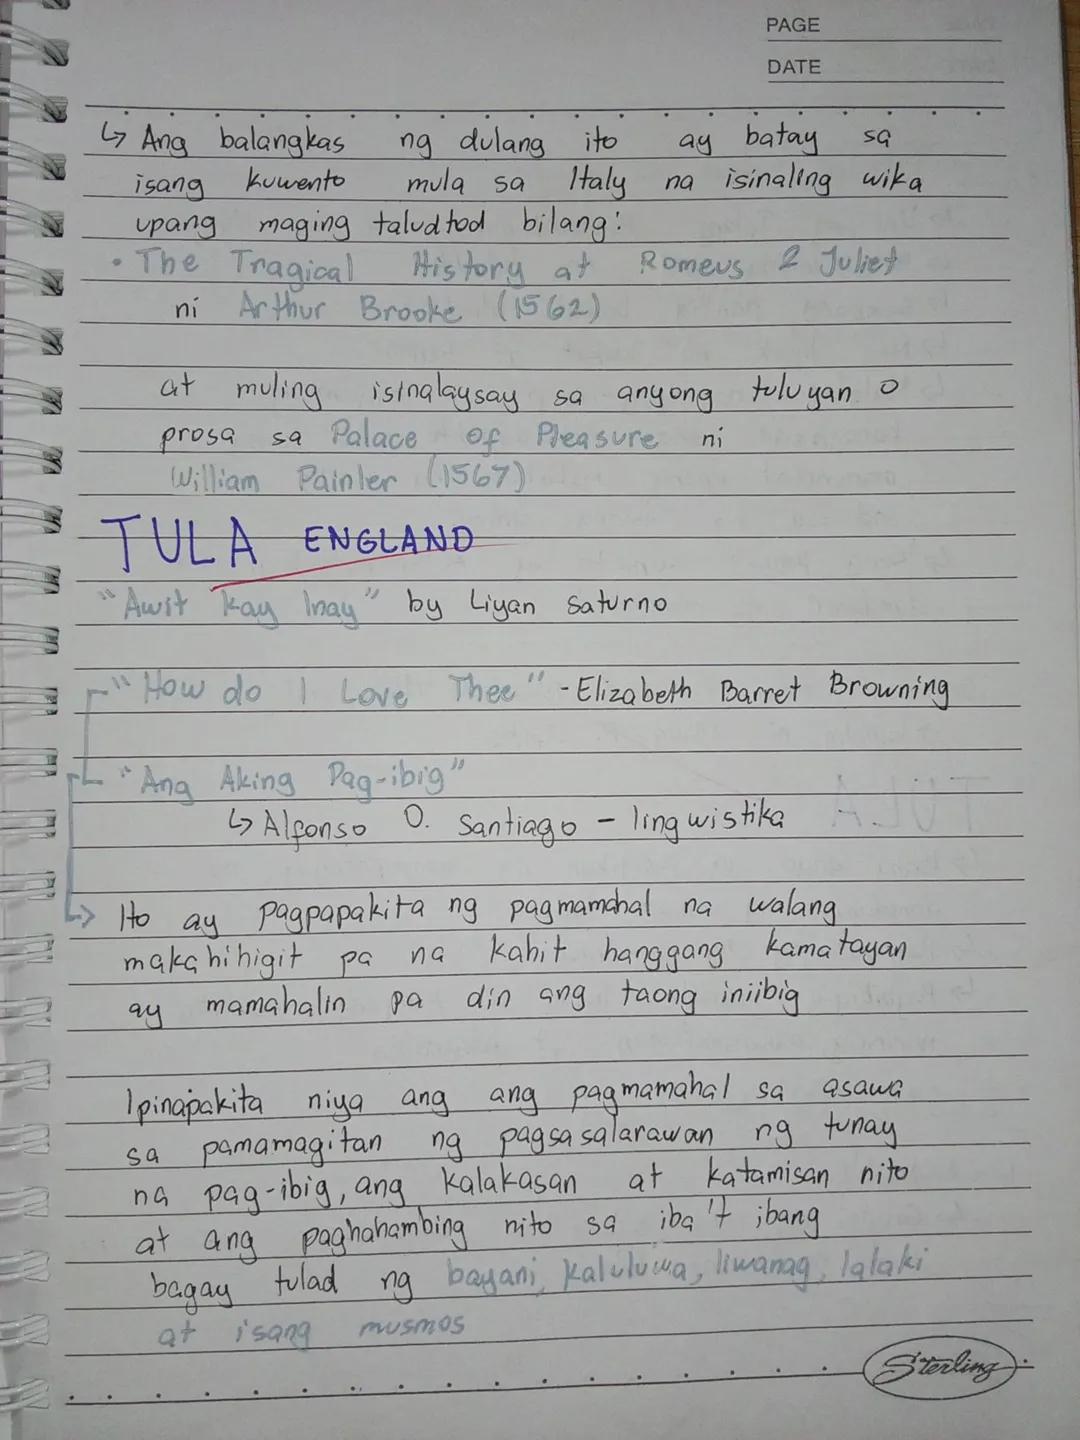 PAGE
DATE
↳ Ang balangkas ng dulang ito ay batay sa
isang kuwento mula sa Italy na isinaling wika
upang maging taludtod bilang:
• The Tragical History at Romeus & Juliet
ni Arthur Brooke (1562)
at muling isinalaysay sa anyong tuluyan o
prosa sa Palace of Pleasure ni
William Painter (1567)
TULA ENGLAND
"Awit kay Inay" by Liyan Saturno
"How do I Love Thee" - Elizabeth Barret Browning
"Ang Aking Pag-ibig"
↳ Alfonso O. Santiago - lingwistika
↳ Ito ay pagpapakita ng pagmamahal na walang
makahihigit pa na kahit hanggang kamatayan
ay mamahalin pa din ang taong iniibig
Ipinapakita niya ang ang pagmamahal sa asawa
sa pamamagitan ng pagsasalarawan ng tunay
na pag-ibig, ang kalakasan at katamisan nito
at ang paghahambing nito sa iba't ibang
bagay tulad ng bayani, kaluluwa, liwanag, lalaki
at isang musmos
Sterling